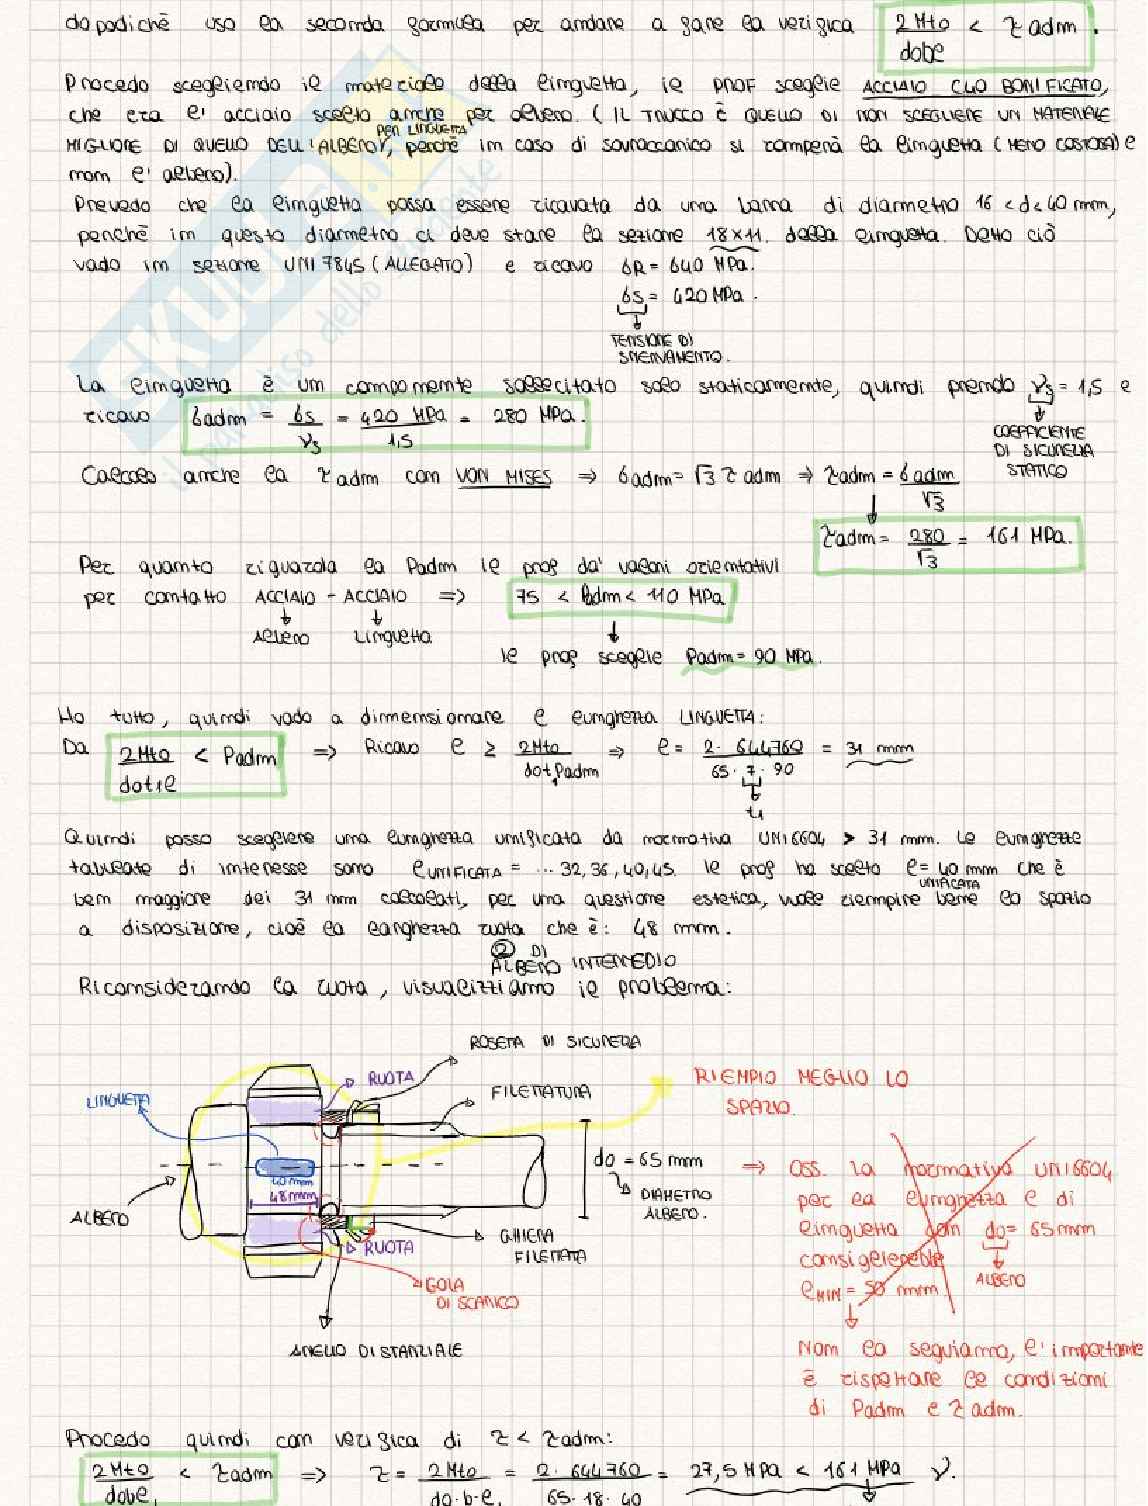 dopodichè uso la seconda formula per andare a fare la verifica 2Mto/dobe < τ adm.
Procedo scegliendo il materiale della linguetta, il PROF sceglie ACCIAIO C40 BONIFICATO,
che era l'acciaio scelto anche per albero. (IL TRUCCO È QUELLO DI NON SCEGLIERE UN MATERIALE
PER LINGUETTA
MIGLIORE DI QUELLO DELL'ALBERO, perchè in caso di sovraccarico si romperà la linguetta (MENO COSTOSA) e
non l'albero).
Prevedo che la linguetta possa essere ricavata da una barra di diametro 16 < d < 40 mm,
perchè in questo diametro ci deve stare la sezione 18x11. della linguetta. Detto ciò
vado in sezione UNI 7845 (ALLEGATO) e ricavo σR = 640 MPa.
σs = 420 MPa.
TENSIONE DI
SNERVAMENTO.
La linguetta è un componente sollecitato solo staticamente, quindi prendo νs = 1,5 e
ricavo σadm = σs/νs = 420 MPa/1,5 = 280 MPa.
COEFFICIENTE
DI SICUREZZA
STATICO
Calcolo anche la τ adm con VON MISES ⇒ σadm = √3 τ adm ⇒ τadm = σadm/√3
τadm = 280/√3 = 161 MPa.
Per quanto riguarda la Padm il prof da' valori orientativi
per contatto ACCIAIO - ACCIAIO ⇒ 75 < Padm < 110 MPa
ALBERO LINGUETTA
il prof sceglie Padm = 90 MPa.
Ho tutto, quindi vado a dimensionare l lunghezza LINGUETTA:
Da 2Mto/dot1l < Padm ⇒ Ricavo l ≥ 2Mto/dot1Padm ⇒ l = 2·644760/65·7·90 = 31 mm
t1
Quindi posso scegliere una lunghezza unificata da normativa UNI6604 > 31 mm. Le lunghezze
tabulate di interesse sono lUNIFICATA = ... 32, 36, 40, 45. Il prof ha scelto l = 40 mm che è
UNIFICATA
ben maggiore dei 31 mm calcolati, per una questione estetica, vuole riempire bene lo spazio
a disposizione, cioè la larghezza ruota che è: 48 mm.
② DI
ALBERO INTERMEDIO
Riconsiderando la ruota, visualizziamo il problema:
ROSETTA DI SICUREZZA
RUOTA
FILETTATURA
RIEMPIO MEGLIO LO
SPAZIO.
LINGUETTA
40 mm
48 mm
do = 65 mm
DIAMETRO
ALBERO.
ALBERO
RUOTA
GHIERA
FILETTATA
GOLA
DI SCARICO
ANELLO DISTANZIALE
⇒ OSS. La normativa UNI6604
per la lunghezza l di
linguetta con do = 65 mm
consiglerebbe
ALBERO
lMIN = 50 mm
Non la seguiamo, l'importante
è rispettare le condizioni
di Padm e τ adm.
Procedo quindi con verifica di τ < τadm:
2Mto/dobe < τadm ⇒ τ = 2Mto/do·b·l = 2·644760/65·18·40 = 27,5 MPa < 161 MPa √.